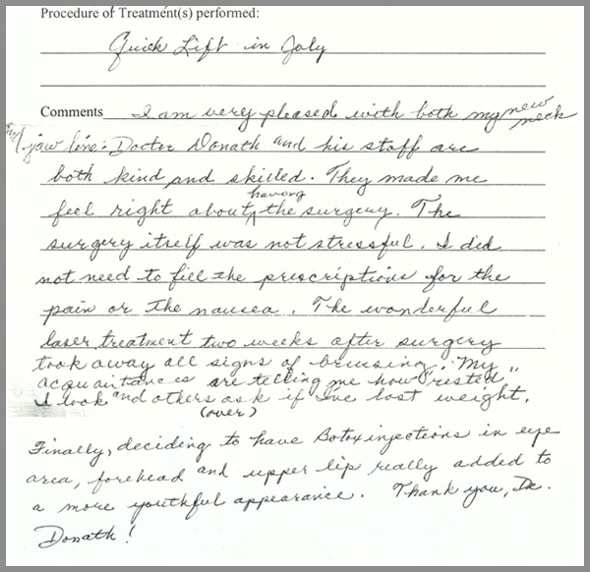 Procedure or Treatment(s) performed:
Quick Lift in July
Comments I am very pleased with both my new neck
and jaw line. Doctor Donath and his staff are
both kind and skilled. They made me
feel right about having the surgery. The
surgery itself was not stressful. I did
not need to fill the prescriptions for the
pain or the nausea. The wonderful
laser treatment two weeks after surgery
took away all signs of bruising. My
acquaintances are telling me how "rested"
I look and others ask if I've lost weight.
(over)
Finally, deciding to have Botox injections in eye
area, forehead and upper lip really added to
a more youthful appearance. Thank you, Dr.
Donath!